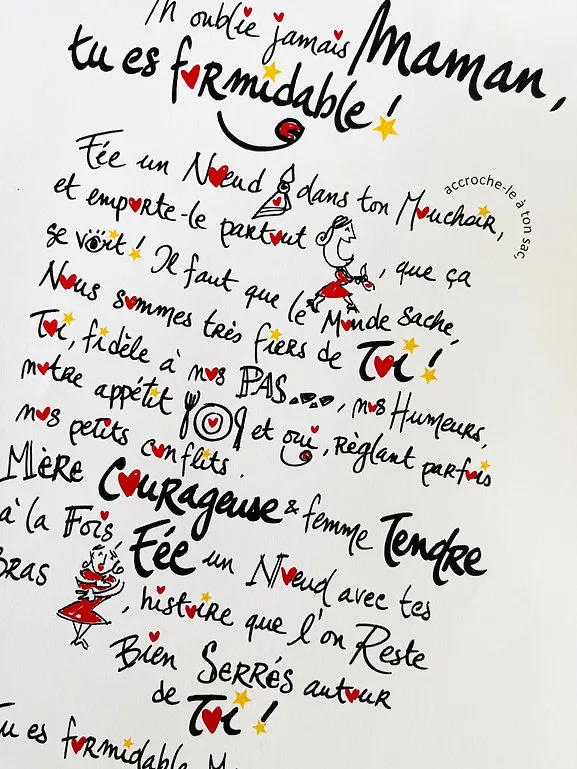 N'oublie jamais Maman,
tu es formidable !
Fée un Nœud dans ton Mouchoir,
accroche-le à ton sac,
et emporte-le partout, que ça
se voit ! Il faut que le Monde sache,
Nous sommes très fiers de Toi !
Toi, fidèle à nos PAS..., nos Humeurs,
notre appétit et oui, Règlant parfois
nos petits conflits.
Mère Courageuse & femme Tendre
à la Fois
Fée un Nœud avec tes
Bras, histoire que l'on Reste
Bien Serrés autour
de Toi !
Tu es formidable